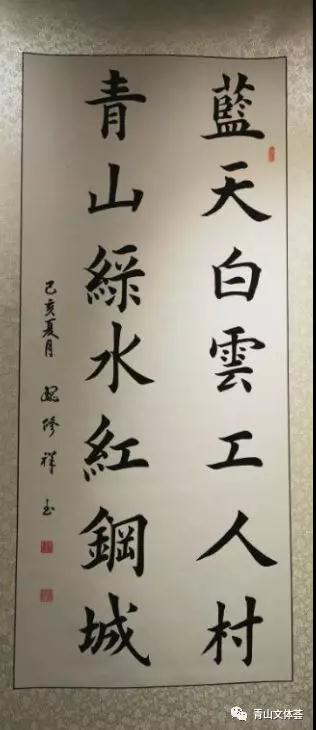 藍天白雲工人村
青山綠水紅鋼城
己亥夏月 修祥书
青山文体荟